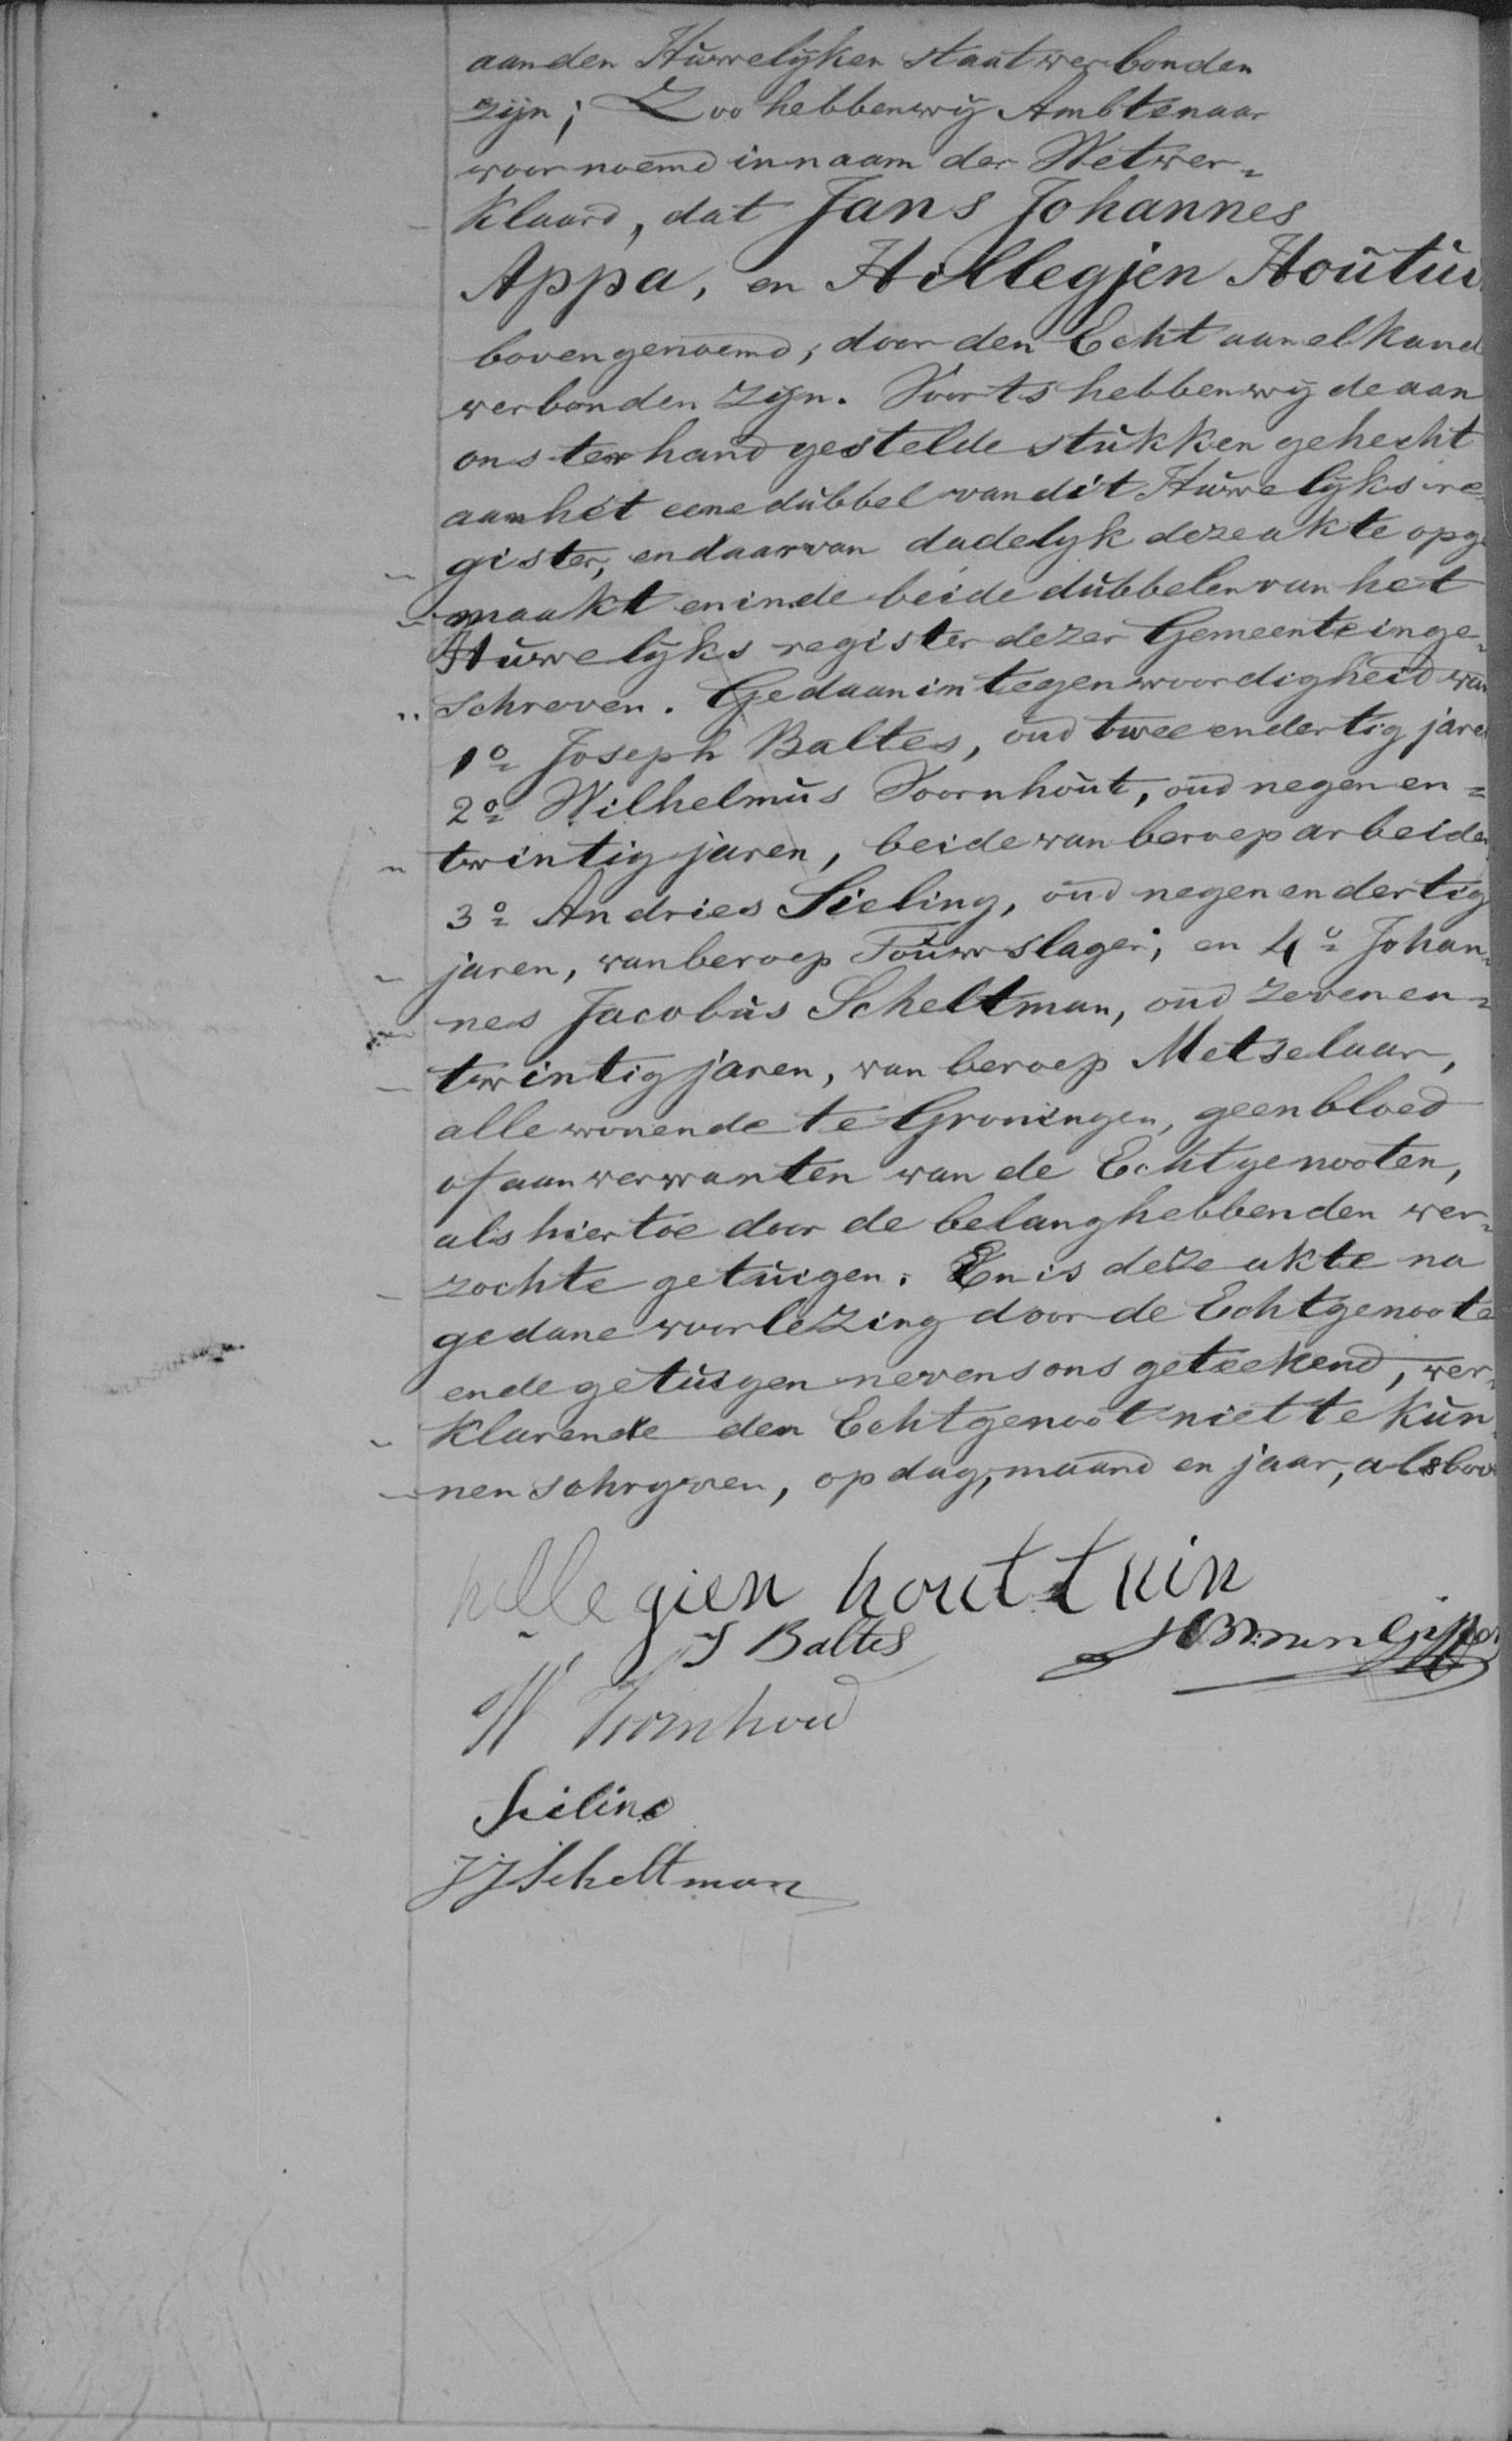 aan den Huwelyken staat verbonden
zijn; Zoo hebben wij Ambtenaar
voornoemd in naam der Wet ver=
klaard, dat Jans Johannes
Appa, en Hillegjen Houtui
bovengenoemd, door den Echt aan elkand
verbonden zijn. Voorts hebben wij de aan
ons ter hand gestelde stukken gehecht
aan het eene dubbel van dit Huwelyks re=
gister, en daarvan dadelyk deze akte opge
maakt en in de beide dubbelen van het
Huwelyks register dezer Gemeente inge=
schreven. Gedaan in tegenwoordigheid van
1o Joseph Baltes, oud twee en dertig jaren
2o Wilhelmus Voornhout, oud negen en=
twintig jaren, beide van beroep arbeider
3o Andries Sieling, oud negen en dertig
jaren, van beroep Touwslager; en 4o Johan=
nes Jacobus Scheltman, oud zeven en=
twintig jaren, van beroep Metselaar,
alle wonende te Groningen, geen bloed
of aanverwanten van de Echtgenooten,
als hiertoe door de belanghebbenden ver=
zochte getuigen. En is deze akte na
gedane voorlezing door de Echtgenoote
en de getuigen nevens ons geteekend, ver=
klarende den Echtgenoot niet te kun
nen schryven, op dag, maand en jaar, als bov
hillegien houttuin
J Baltes
W Voornhoud
Sieling
JJ Scheltman